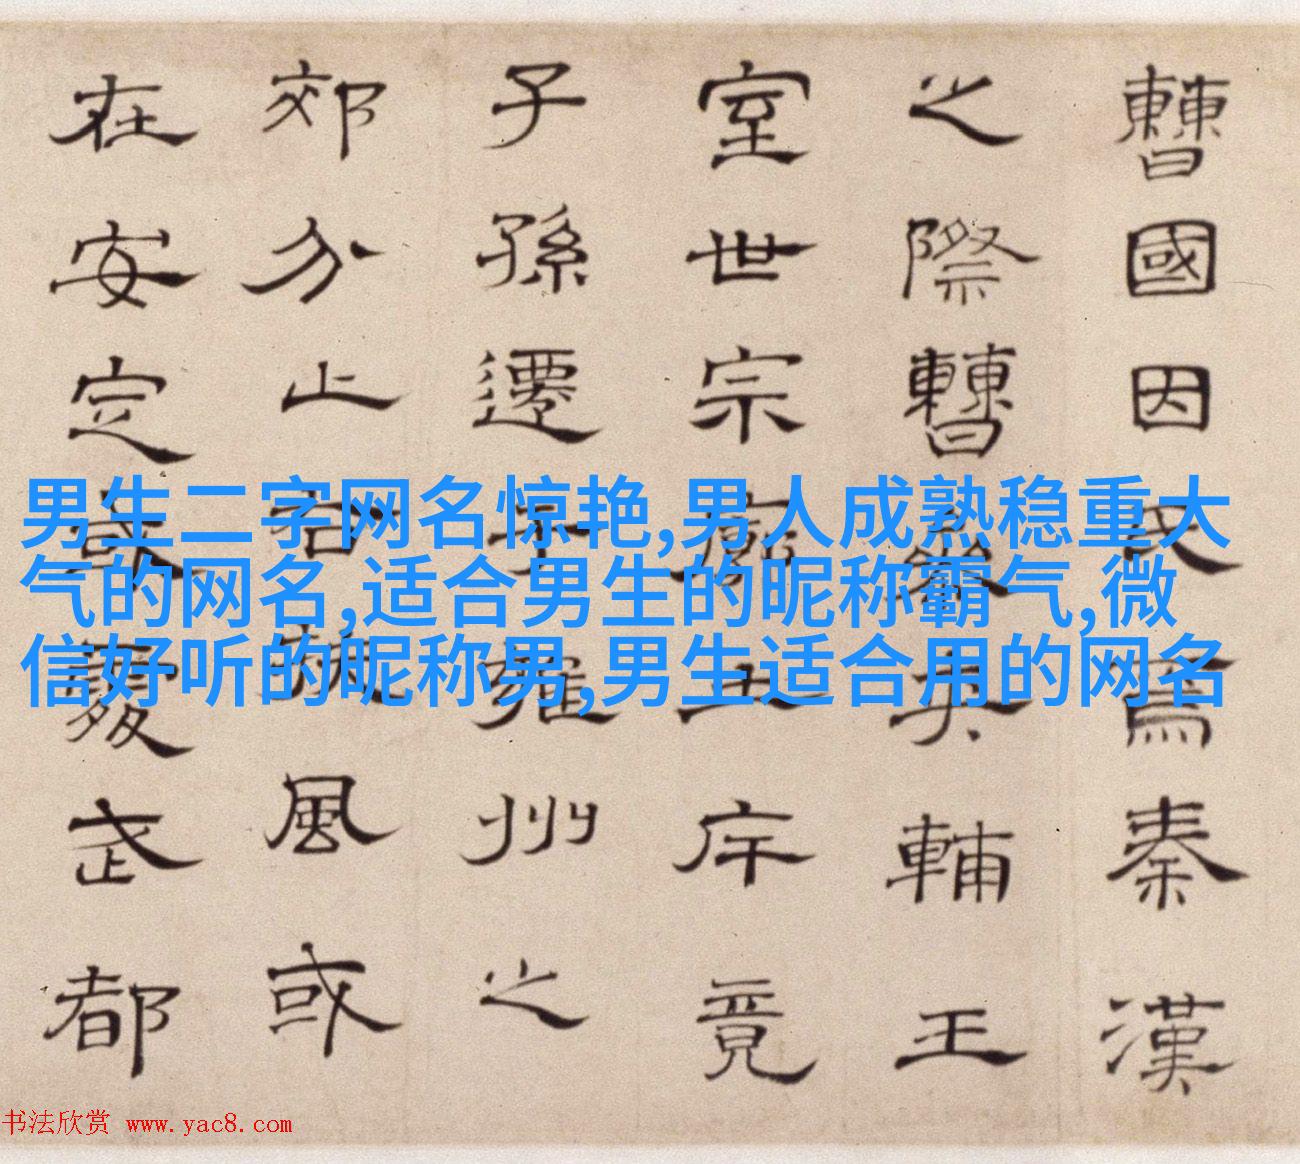 曹國因氏焉秦漢
之際曹參夾輔王
室世宗廓土斥竟
子孫遷于雍州之
郊分止右扶風或
在安定或處武都
男生二字网名惊艳,男人成熟稳重大
气的网名,适合男生的昵称霸气,微
信好听的昵称男,男生适合用的网名
书法欣赏 www.yac8.com